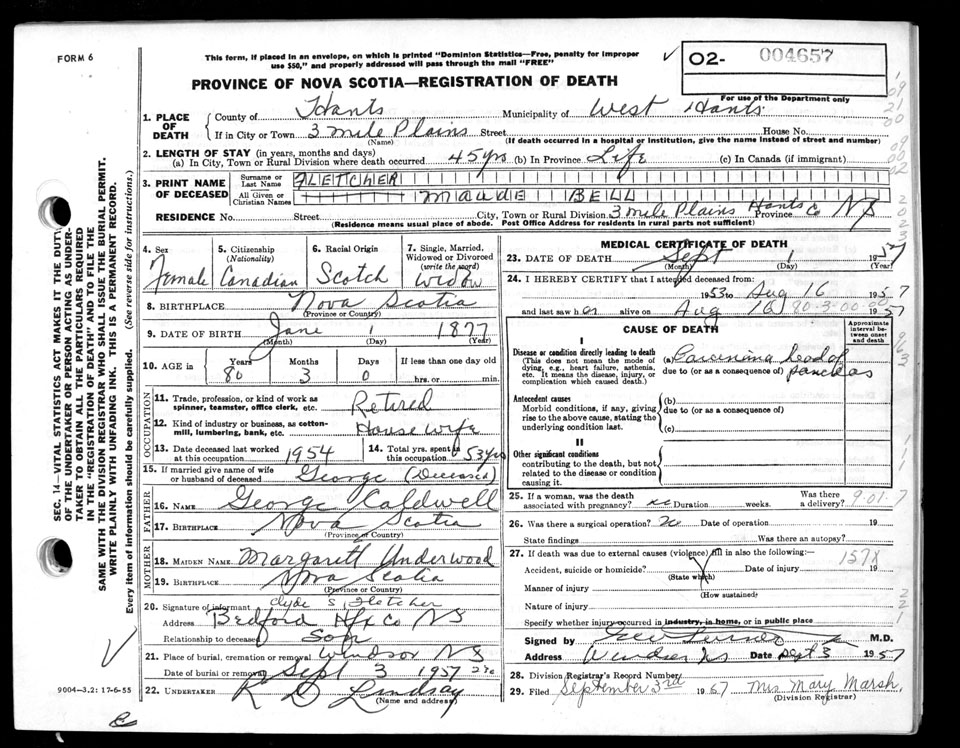 FORM 6
This form, if placed in an envelope, on which is printed "Dominion Statistics—Free, penalty for improper
use $50," and properly addressed will pass through the mail "FREE"
PROVINCE OF NOVA SCOTIA—REGISTRATION OF DEATH
02- 004657
For use of the Department only
1. PLACE OF DEATH
County of Hants Municipality of West Hants
If in City or Town 3 mile Plains Street House No.
(Name) (If death occurred in a hospital or institution, give the name instead of street and number)
2. LENGTH OF STAY (in years, months and days)
(a) In City, Town or Rural Division where death occurred 45 yrs (b) In Province Life (c) In Canada (if immigrant)
3. PRINT NAME OF DECEASED
Surname or Last Name FLETCHER
All Given or Christian Names MAUDE BELL
RESIDENCE No. Street City, Town or Rural Division 3 mile Plains Hants Co Province NS
(Residence means usual place of abode. Post Office Address for residents in rural parts not sufficient)
4. Sex Female
5. Citizenship (Nationality) Canadian
6. Racial Origin Scotch
7. Single, Married, Widowed or Divorced (write the word) Widow
8. BIRTHPLACE Nova Scotia
(Province or Country)
9. DATE OF BIRTH June 1 1877
(Month) (Day) (Year)
10. AGE in Years 80 Months 3 Days 0 If less than one day old hrs. or min.
OCCUPATION
11. Trade, profession, or kind of work as spinner, teamster, office clerk, etc. Retired
12. Kind of industry or business, as cotton-mill, lumbering, bank, etc. House wife
13. Date deceased last worked at this occupation 1954
14. Total yrs. spent in this occupation 53 yrs
15. If married give name of wife or husband of deceased George (Deceased)
FATHER
16. NAME George Caldwell
17. BIRTHPLACE Nova Scotia
(Province or Country)
MOTHER
18. MAIDEN NAME Margarett Underwood
19. BIRTHPLACE Nova Scotia
(Province or Country)
20. Signature of informant Clyde S Fletcher
Address Bedford Hfx Co NS
Relationship to deceased Son
21. Place of burial, cremation or removal Windsor NS
Date of burial or removal Sept 3 1957
22. UNDERTAKER R D Lindsay
(Name and address)
MEDICAL CERTIFICATE OF DEATH
23. DATE OF DEATH Sept 1 1957
(Month) (Day) (Year)
24. I HEREBY CERTIFY that I attended deceased from:
1953 to Aug 16 1957
and last saw her alive on Aug 16 1957
80-3-00-00
CAUSE OF DEATH
Approximate interval between onset and death
I
Disease or condition directly leading to death
(This does not mean the mode of dying, e.g., heart failure, asthenia, etc. It means the disease, injury, or complication which caused death.)
(a) Carcinoma head of
due to (or as a consequence of) pancreas
Antecedent causes
Morbid conditions, if any, giving rise to the above cause, stating the underlying condition last.
(b)
due to (or as a consequence of)
(c)
II
Other significant conditions
contributing to the death, but not related to the disease or condition causing it.
25. If a woman, was the death associated with pregnancy? no Duration weeks. Was there a delivery?
901.7
26. Was there a surgical operation? no Date of operation 19
State findings Was there an autopsy?
27. If death was due to external causes (violence) fill in also the following:
Accident, suicide or homicide? Date of injury 19
157X
(State which)
Manner of injury
(How sustained)
Nature of injury
Specify whether injury occurred in industry, in home, or in public place
Signed by M.D.
Address Windsor NS Date Sept 3 1957
28. Division Registrar's Record Number
29. Filed September 3rd 1957 Mrs Mary Marsh.
(Division Registrar)
9004—3.2: 17-6-55
SEC. 14—VITAL STATISTICS ACT MAKES IT THE DUTY
OF THE UNDERTAKER OR PERSON ACTING AS UNDER-
TAKER TO OBTAIN ALL THE PARTICULARS REQUIRED
IN THE "REGISTRATION OF DEATH" AND TO FILE THE
SAME WITH THE DIVISION REGISTRAR WHO SHALL ISSUE THE BURIAL PERMIT.
WRITE PLAINLY WITH UNFADING INK. THIS IS A PERMANENT RECORD.
Every item of information should be carefully supplied. (See reverse side for instructions.)